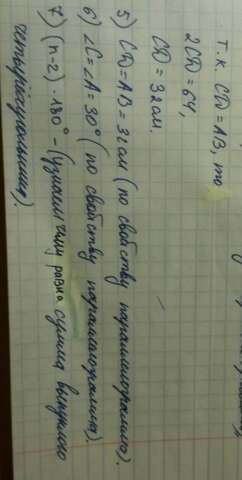 т. к. CD = AB, то
2CD = 64,
CD = 32 см.
5) CD = AB = 32 см (по свойству параллелограмма).
6) ∠C = ∠A = 30° (по свойству параллелограмма).
7) (n-2) · 180° – (узнаем чему равна сумма выпуклого
четырёхугольника).